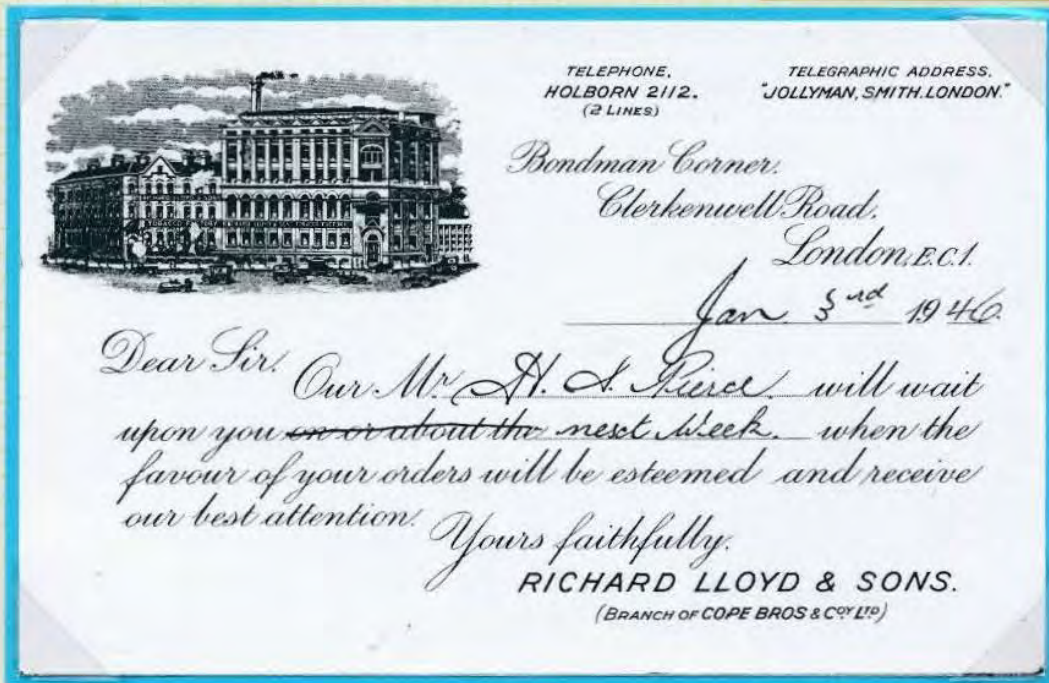 TELEPHONE,
HOLBORN 2112.
(2 LINES)
TELEGRAPHIC ADDRESS,
"JOLLYMAN, SMITH. LONDON."
Bondman Corner.
Clerkenwell Road.
London, E.C.1.
Jan. 3rd 1946.
Dear Sir.
Our Mr. H. S. Pierce. will wait
upon you on or about the next Week. when the
favour of your orders will be esteemed and receive
our best attention.
Yours faithfully.
RICHARD LLOYD & SONS.
(BRANCH OF COPE BROS & COY LTD)